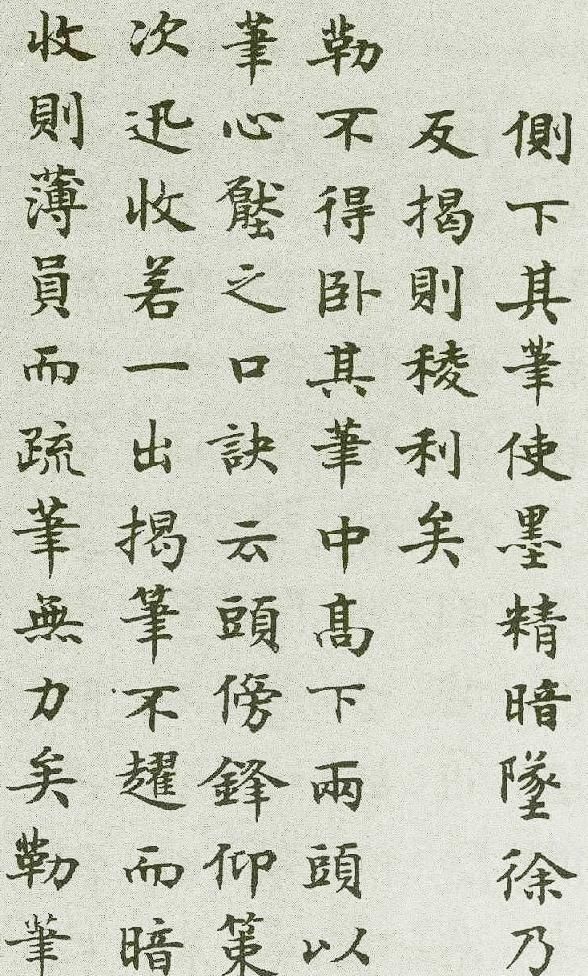 側下其筆使墨精暗墜徐乃
反揭則稜利矣
勒不得卧其筆中高下兩頭以
筆心壓之口訣云頭傍鋒仰策
次迅收若一出揭筆不趯而暗
收則薄員而疏筆無力矣勒筆